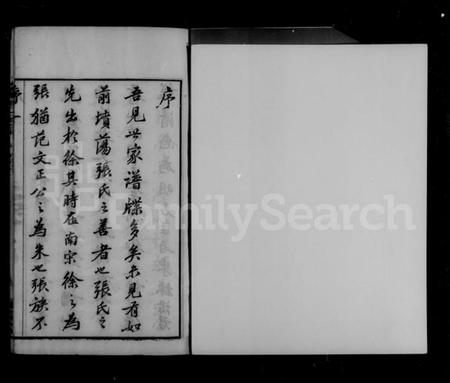 序
吾見世家譜牒多矣未見有如
前墳蕩張氏之善者也張氏之
先出於徐其時在南宋徐之為
張猶范文正公之為朱也張族不
FamilySearch